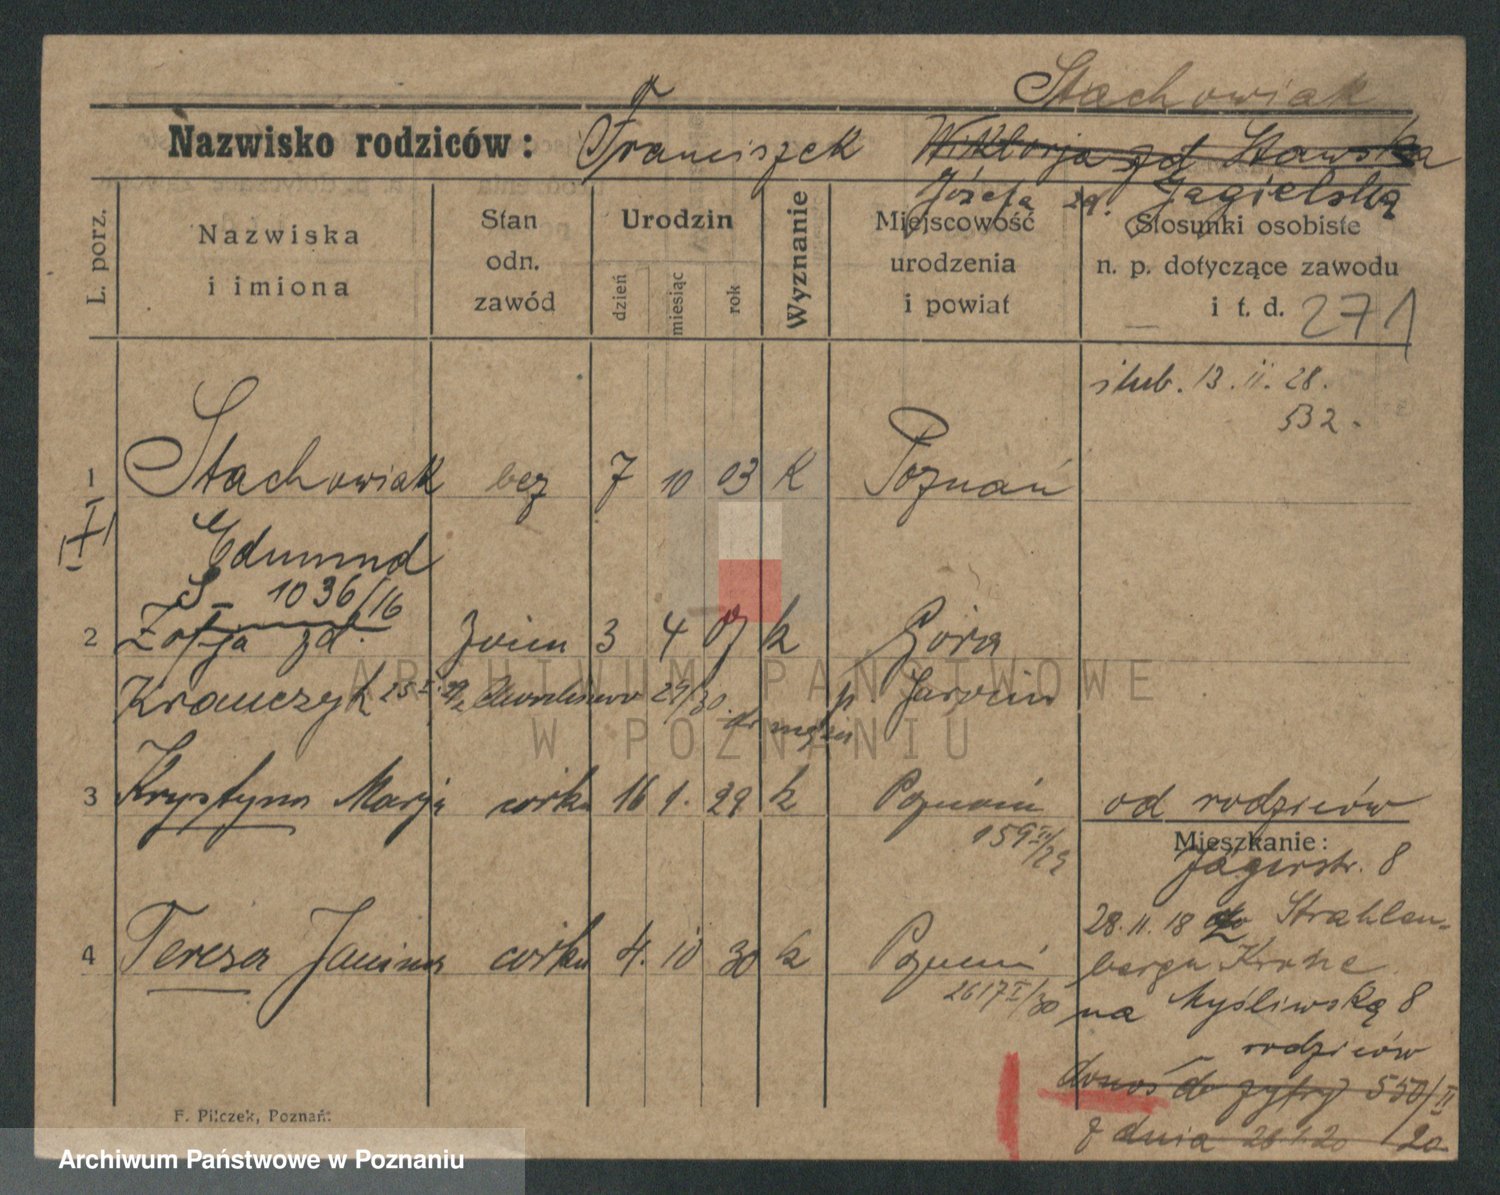 Stachowiak
Nazwisko rodziców: Franciszek Wiktorja zd Stawska
Józefa zd. Jagielską
L. porz.
Nazwiska
i imiona
Stan
odn.
zawód
Urodzin
dzień
miesiąc
rok
Wyznanie
Miejscowość
urodzenia
i powiat
Stosunki osobiste
n. p. dotyczące zawodu
i t. d. 271
ślub. 13.II.28.
532.
1 Stachowiak bez 7 10 03 K Poznań
Edmund
S - 1036/16
2 Zofja zd. 3 4 07 k Góra
Krawczyk p. Jarocin
3 Krystyna Marja córka 16 1. 29 k Poznań od rodziców
Mieszkanie:
Jägerstr. 8
4 Teresa Janina córka 4. 10 30 k Poznań
28.11.18 do Strahlen-
berga Krone
na Myśliwską 8
rodziców
550/II
z dnia 28.1.20 /20
F. Pilczek, Poznań.
ARCHIWUM PAŃSTWOWE
W POZNANIU
Archiwum Państwowe w Poznaniu